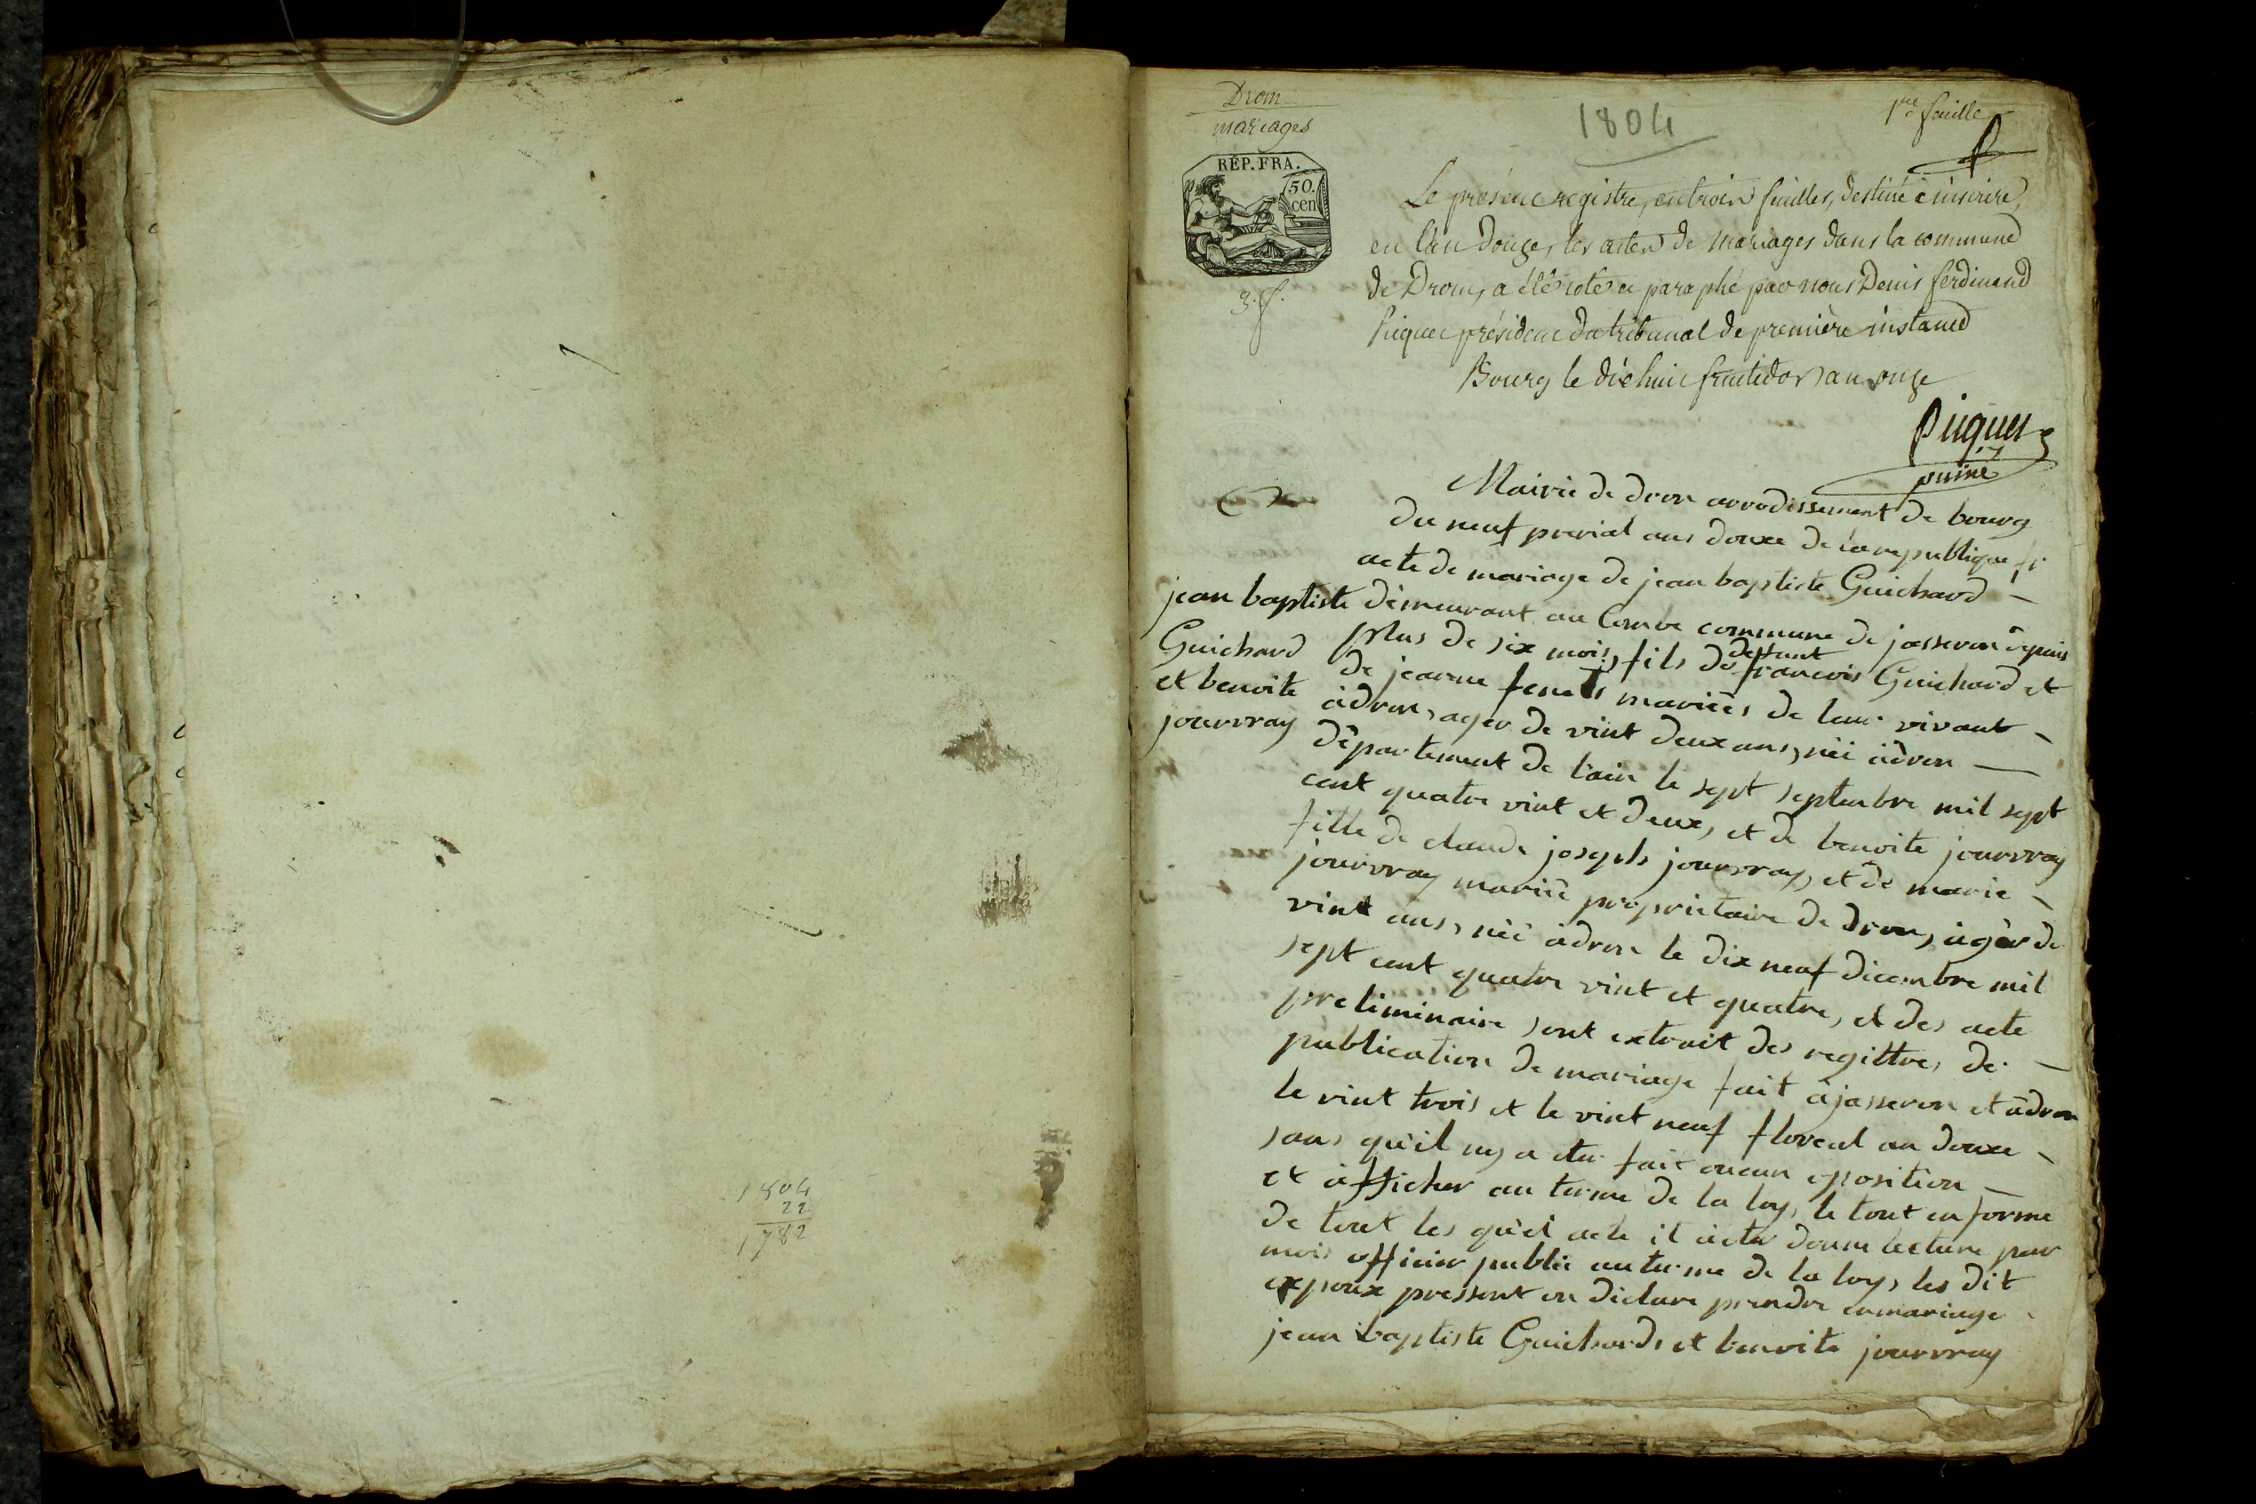 1804
22
1782
Drom
mariages
1804
1re feuille
RÉP. FRA.
50.
cen
3. f.
Le présent registre, en trois feuilles, destiné à inscrire,
en l'an douze, les actes de mariages dans la commune
de Drom, a été coté et paraphé par nous Denis ferdinand
Picquet président du tribunal de première instance
Bourg le dix huit fructidor an onze
Picquet
puiné
Mairie de dron arrodissement de bourg
du neuf prerial ans douze de la republique fr
acte de mariage de jean baptiste Guichard
jean baptiste
Guichard
et benoite
jourvray
démeurant au Combe commune de jasseron dépuis
plus de six mois, fils de deffunt francois Guichard et
de jeanne mariées de leur vivant
à dron, ager de vint deux ans, née à dron
département de l'ain le sept septembre mil sept
cent quatre vint et deux, et de benoite jourvray
fille de claude joseph jourvray, et de marie
jourvray mariée propriétaire de dron, àgér de
vint ans, née à dron le dix neuf dicembre mil
sept cent quatre vint et quatre, et des acte
preliminaire sont extrait des regittre, de
publication de mariage fait à jasseron et à dron
le vint trois et le vint neuf floreal an douze
sans qu'il ny a etu fait aucun oposition
et àfficher au terme de la loy, le tout en forme
de tout les qu'el acte il àetu donne lecture par
moi officier public au terme de la loy, les dit
epoux pressent on diclare prendre en mariage
jean baptiste Guichard, et benoite jourvray